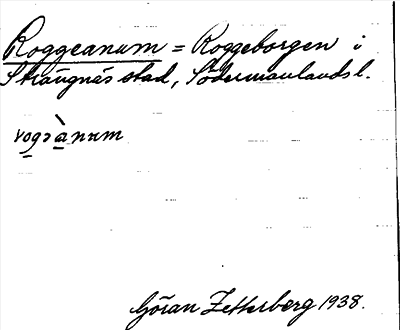 Roggeanum = Roggeborgen i
Strängnäs stad, Södermanlands l.
rogɜànum
Göran Zetterberg 1938.